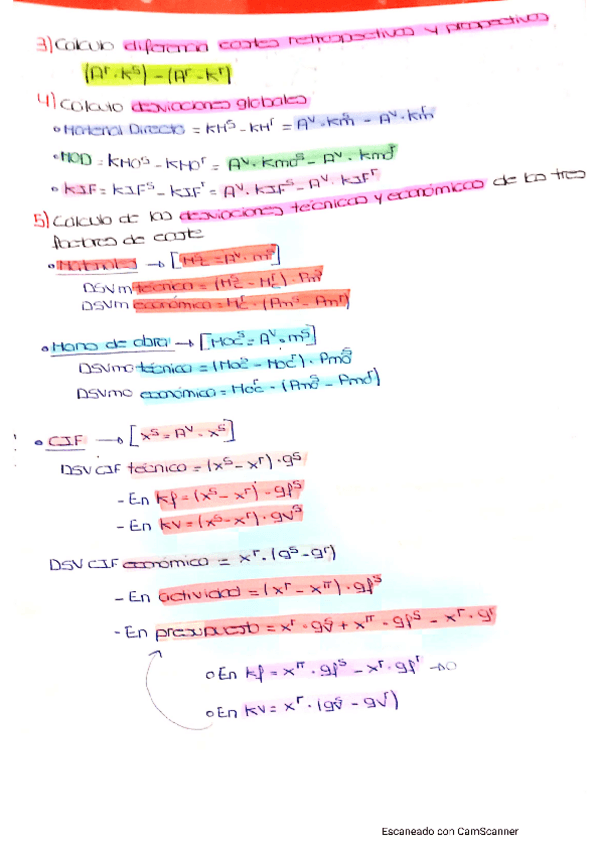 3) Calculo diferencia costes retrospectivos y prospectivos
(Aʳ·kˢ) - (Aʳ-kʳ)
4) Calculo desviaciones globales
• Material Directo = KHˢ - KHʳ = Aᵛ·kmˢ - Aᵛ·kmʳ
• MOD = KHOˢ - KHOʳ = Aᵛ·kmoˢ - Aᵛ·kmoʳ
• KIF = KIFˢ - KIFʳ = Aᵛ·KIFˢ - Aᵛ·KIFʳ
5) Calculo de las desviaciones técnicas y económicas de los tres
factores de coste
• Materiales → [Mcˢ = Aᵛ·mˢ]
DSVm técnica = (Mcˢ - Mcʳ)·Pmˢ
DSVm económica = Mcʳ·(Pmˢ - Pmʳ)
• Mano de obra → [Mocˢ = Aᵛ·mˢ]
DSVmo técnica = (Mocˢ - Mocʳ)·Pmoˢ
DSVmo económica = Mocʳ·(Pmoˢ - Pmoʳ)
• CIF → [xˢ = Aᵛ·xˢ]
DSV CIF técnica = (xˢ - xʳ)·gˢ
- En kf = (xˢ - xʳ)·gfˢ
- En kv = (xˢ - xʳ)·gvˢ
DSV CIF económica = xʳ·(gˢ - gʳ)
- En actividad = (xʳ - xᴨ)·gfˢ
- En presupuesto = xʳ·gvˢ + xᴨ·gfˢ - xʳ·gʳ
○ En kf = xᴨ·gfˢ - xʳ·gfʳ → 0
○ En kv = xʳ·(gvˢ - gvʳ)
Escaneado con CamScanner